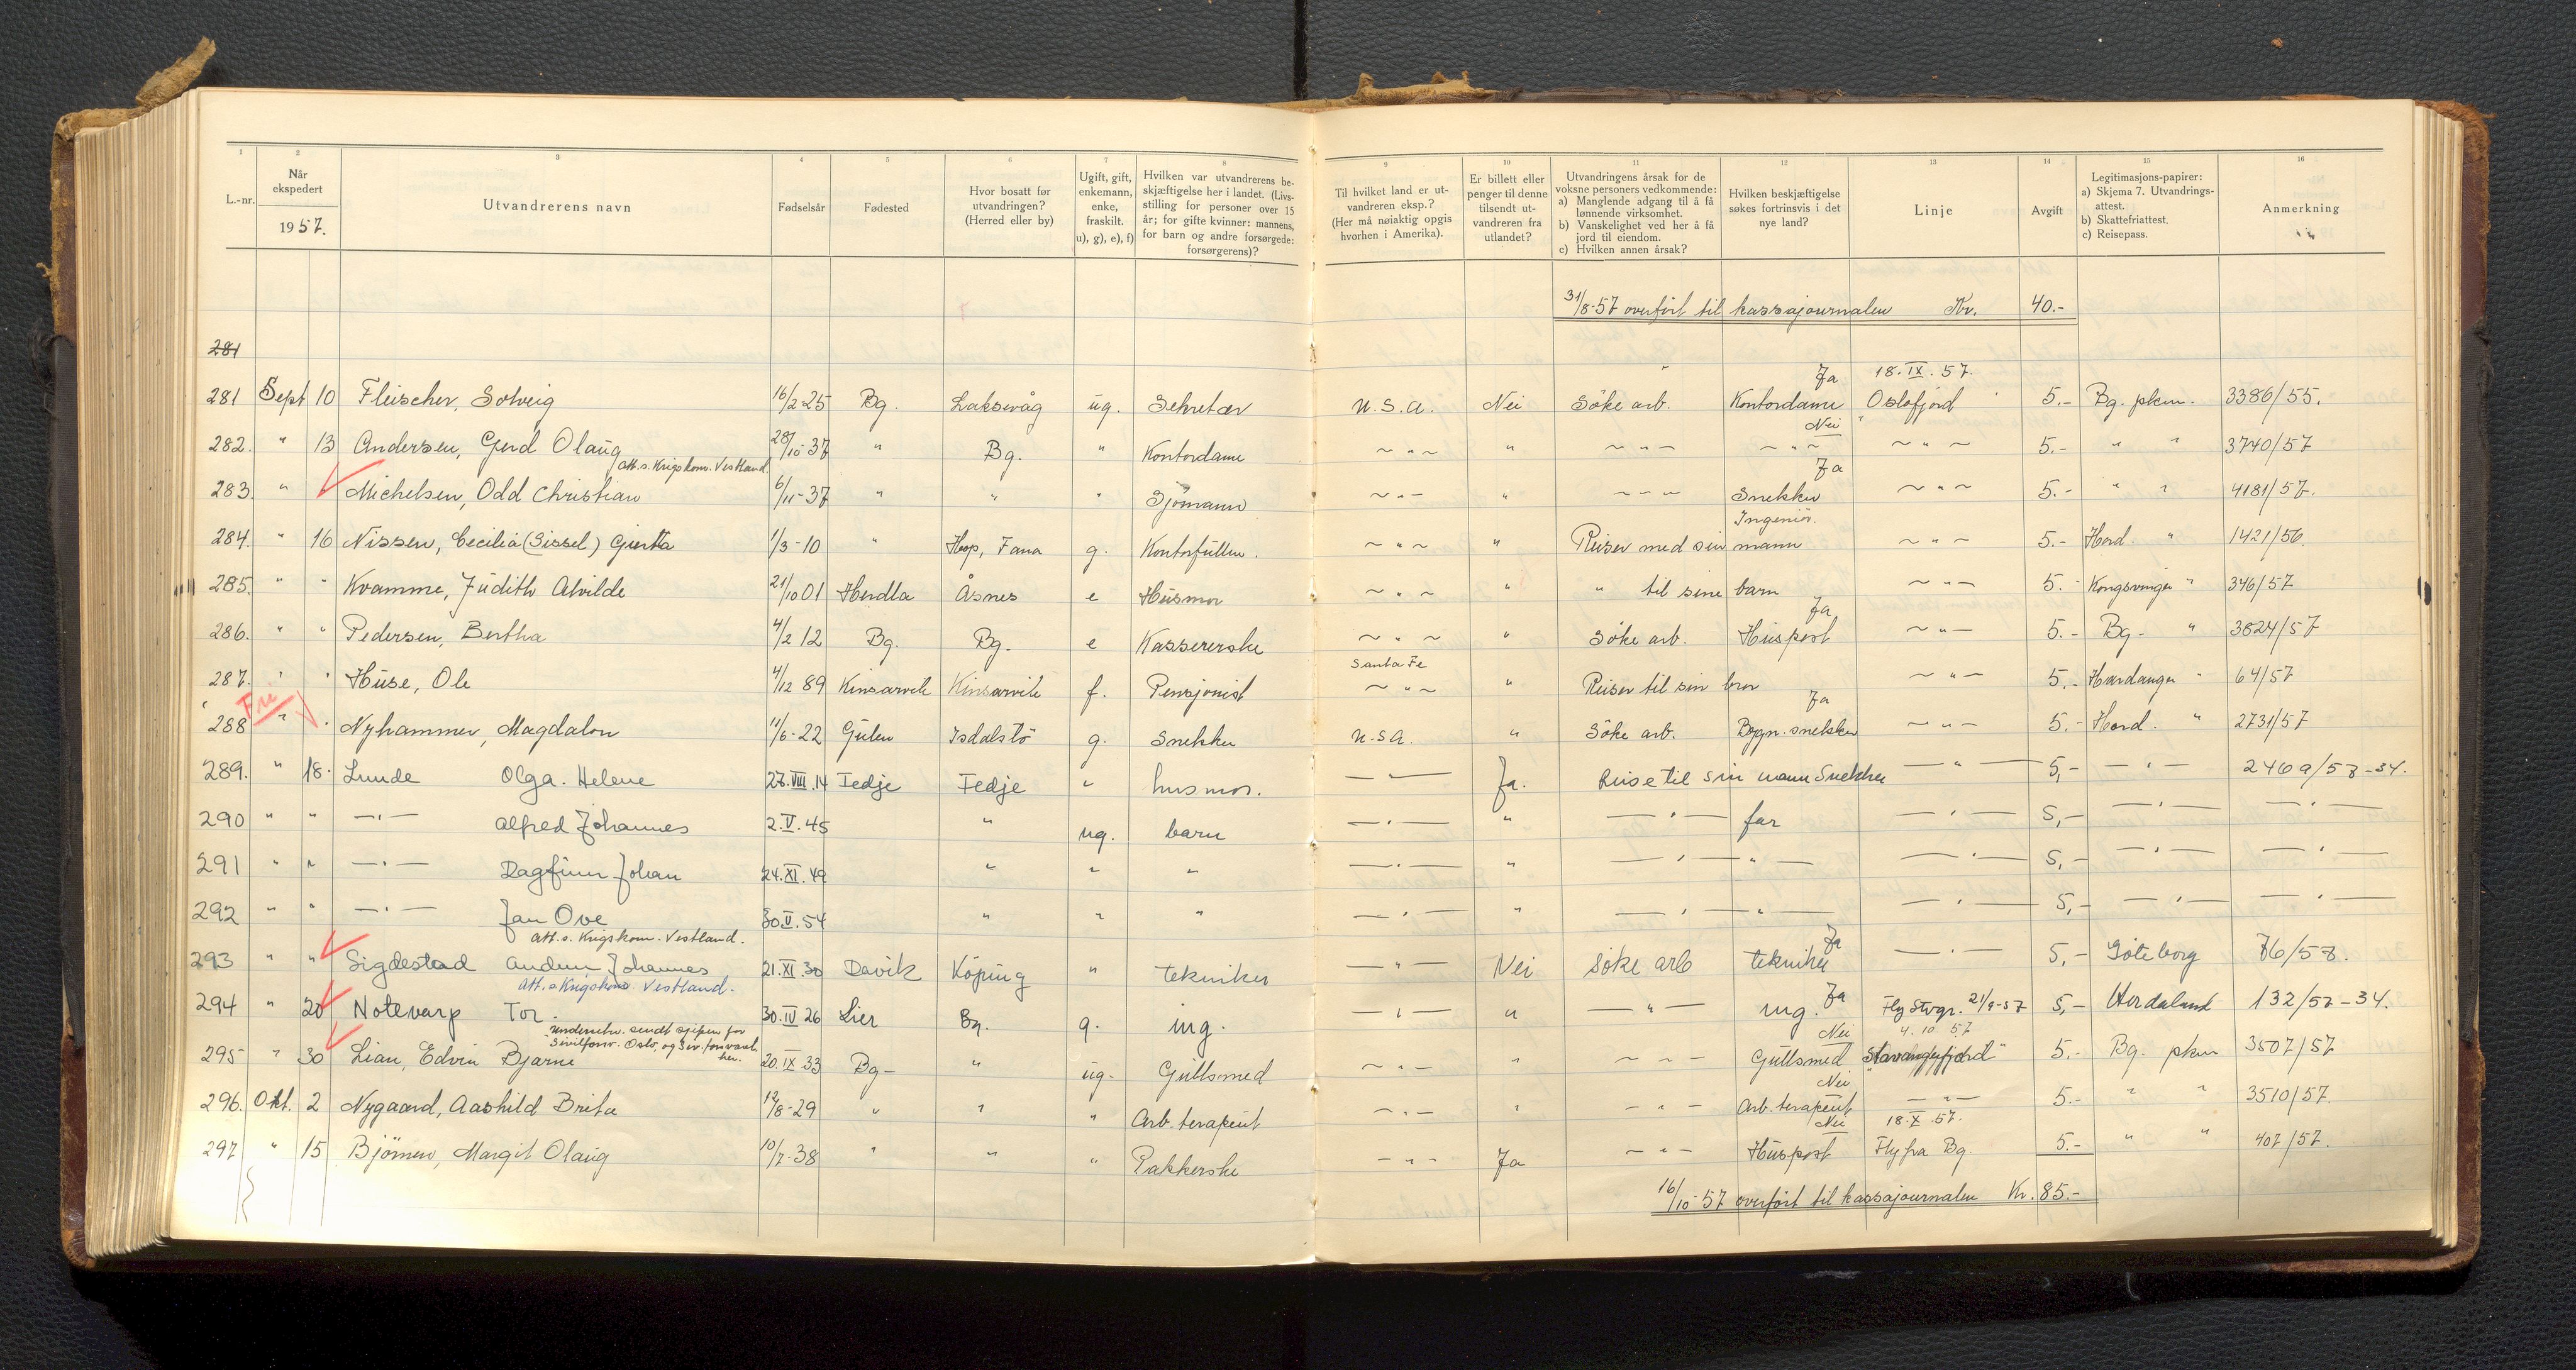 1 2 3 4 5 6 7 8 9 10 11 12 13 14 15 16
L.-nr. | Når ekspedert 1957. | Utvandrerens navn | Fødselsår | Fødested | Hvor bosatt før utvandringen? (Herred eller by) | Ugift, gift, enkemann, enke, fraskilt. u), g), e), f) | Hvilken var utvandrerens beskjæftigelse her i landet. (Livsstilling for personer over 15 år; for gifte kvinner: mannens, for barn og andre forsørgede: forsørgerens)? | Til hvilket land er utvandreren eksp.? (Her må nøiaktig opgis hvorhen i Amerika). | Er billett eller penger til denne tilsendt utvandreren fra utlandet? | Utvandringens årsak for de voksne personers vedkommende: a) Manglende adgang til å få lønnende virksomhet. b) Vanskelighet ved her å få jord til eiendom. c) Hvilken annen årsak? | Hvilken beskjæftigelse søkes fortrinsvis i det nye land? | Linje | Avgift | Legitimasjons-papirer: a) Skjema 7. Utvandringsattest. b) Skattefriattest. c) Reisepass. | Anmerkning
31/8-57 overført til kassajournalen Kr. 40.-
281
Ja 18.IX.57.
281 Sept 10 Fleischer, Solveig 16/2-25 Bg. Laksevåg ug. Sekretær U.S.A. Nei Söke arb. Kontordame Oslofjord 5.- Bg. pkm. 3386/55.
Nei
282. " 13 Andersen, Gerd Olaug 28/10-37 " Bg. " Kontordame ~ " ~ " ~ " ~ ~ " ~ ~ " ~ 5.- " " 3740/57
att.s. Krigskom. Vestland Ja
283. " Michelsen, Odd Christian 6/11-37 " " " Sjömann ~ " ~ " ~ " ~ Snekker ~ " ~ 5.- " " 4181/57.
Ingeniör.
284. " 16 Nissen, Cecilia (Sissel) Gjertta 1/3-10 " Hop, Fana g. Kontorfullm. ~ " ~ " Reiser med sin mann ~ " ~ 5.- Hord. " 1421/56.
285. " " Kvamme, Judith Alvilde 21/10 01 Herdla Åsnes e Husmor ~ " ~ " " til sine barn ~ " ~ 5.- Kongsvinger " 346/57
Ja
286. " " Pedersen, Bertha 4/2 12 Bg. Bg. e Kassererske ~ " ~ " Söke arb. Huspost ~ " ~ 5.- Bg- " 3824/57
Santa Fe
287. " " Huse, Ole 4/12 89 Kinsarvik Kinsarvik f. Pensjonist ~ " ~ " Reiser til sin bror ~ " ~ 5.- Hardanger " 64/57
Fri Ja
288 " " Nyhammer, Magdalon 11/6-22 Gulen Isdalstö g. Snekker U.S.A. " Söke arb. Bygn. snekker ~ " ~ 5.- Hord. " 2731/57
289. " 18. Lunde Olga. Helene 27.VIII.14 Fedje Fedje " husmor. — " — Ja. Reise til sin mann Snekker — " — 5,- — " — 2469/57-34.
290 " " — " — Alfred Johannes 2.V.45 " ug. barn — " — " — " — far — " — 5,- — " — — " —
291 " " — " — Dagfinn Johan 24.XI.49 " " " — " — " — " — " — — " — 5,- — " — — " —
292 " " — " — Jan Ove 30.V.54 " " " — " — " — " — " — — " — 5,- — " — — " —
att.s. Krigskom. Vestland. Ja
293 " " Sigdestad Johannes 21.XI.30 Davik Köping " tekniker — " — Nei söke arb tekniker — " — 5,- Göteborg 76/57.
att.s Krigskom Vestland. Ja
294 " 20 Notevarp Tor. 30.IV 26 Lier Bg. g. ing. — " — " — " — ing. Fly Stvgr. 21/9-57 5,- Hordaland 132/57-34.
Nei 4.10 57
295 " 30 Lian, Edvin Bjarne 20.IX 33 Bg- " ug- Gullsmed ~ " ~ " ~ " ~ Gullsmed "Stavangerfjord" 5.- Bg. pkm 3507/57
Nei
296. Okt. 2 Nygaard, Aashild Brita 12/8-29 " " " Arb. terapeut — " — " — " — Arb. terapeut — " — 5.- " " 3510/57.
Nei 18.X.57.
297 " 15 Björnen, Margit Olaug 10/7-38 " " " Pakkerske — " — Ja — " — Huspost Fly fra Bg. 5.- " " 407/57.
16/10-57 overført til kassajournalen Kr. 85.-